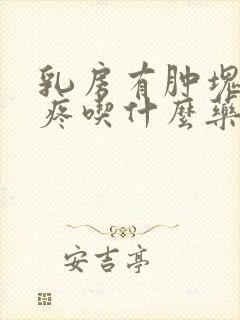 乳房有肿块
疼喫什麼藥
安吉亭